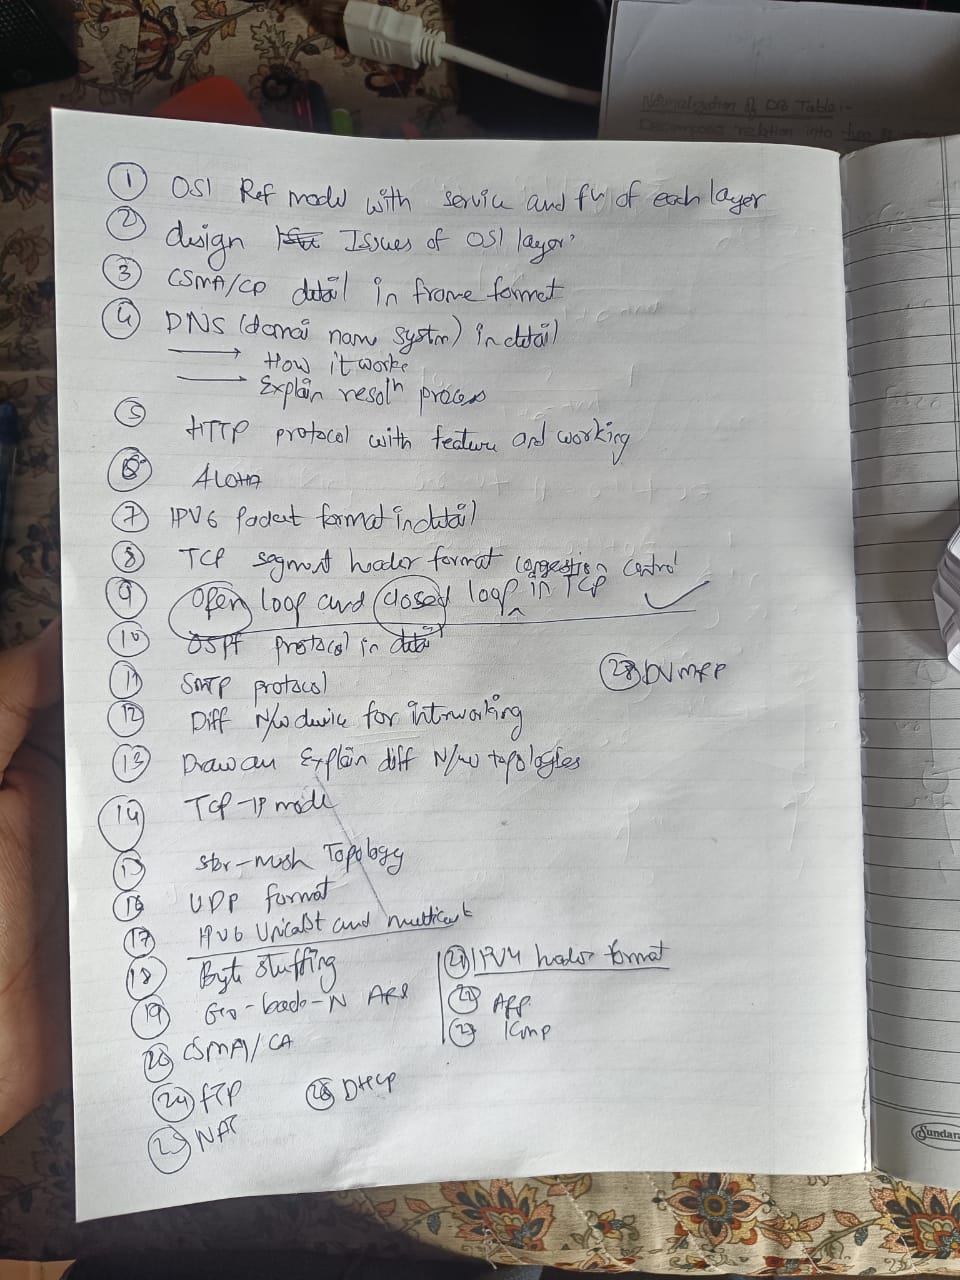 Normalization of DB Table:-
Decompose relation into two
① OSI Ref model with service and fn of each layer
② design Issues of OSI layer
③ CSMA/CD detail in frame format
④ DNS (domai name systm) in detail
→ How it works
→ Explain resolⁿ process
⑤
HTTP protocol with feature and working
⑥ ALOHA
⑦ IPV6 Packet format in detail
⑧ TCP segment header format congestion control
⑨ Open loop and closed loop ^ in TCP ✓
⑩ OSPF protocol in detail
⑪ SMTP protocol
㉘ DVMRP
⑫ Diff N/w device for intrworking
⑬ Draw an Explain diff N/w topologies
⑭ TCP-IP mode
⑮ star-mesh Topology
⑯ UDP format
⑰ IPV6 Unicast and multicast
⑱ Byte stuffing
⑲ Go-back-N ARQ
⑳ CSMA/CA
㉑ IPV4 header format
㉒ ARP
㉓ ICMP
㉔ FTP
㉕ NAT
㉖ DHCP
Sundara